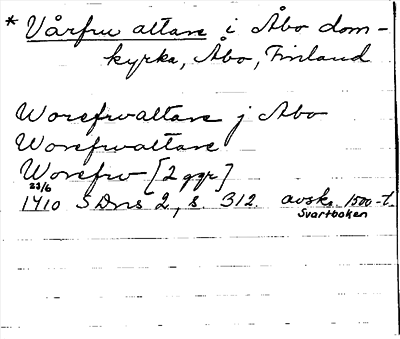 * Vårfru altare i Åbo dom-
kyrka, Åbo, Finland
Worefrvaltare j Abo
Worefrvaltare
Worefrv [2 ggr]
23/6
1410 SDns 2, s. 312. avskr. 1500-t.
Svartboken